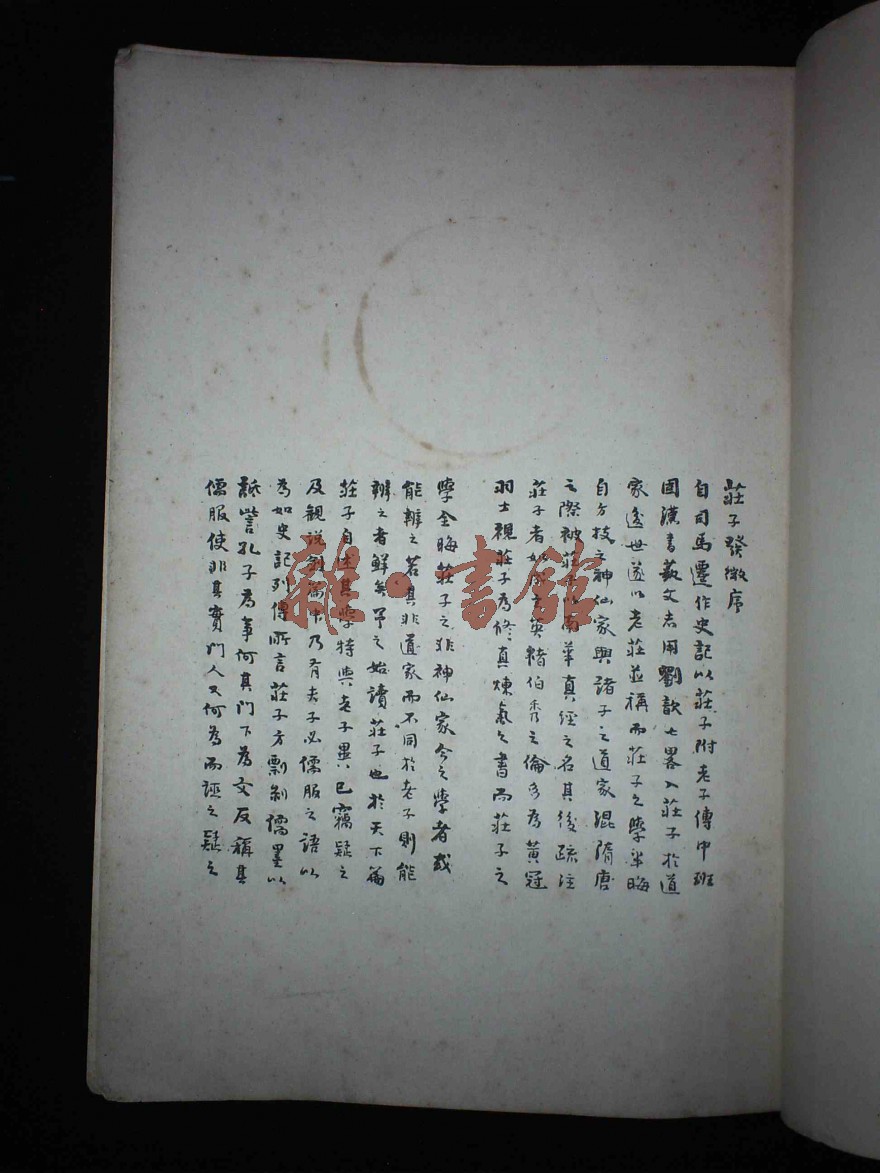 莊子發微序
自司馬遷作史記以莊子附老子傳中班
固漢書藝文志用劉歆七畧入莊子於道
家後世遂以老莊並稱而莊子之學半晦
自方技之神仙家與諸子之道家混隋唐
之際被莊子以南華真經之名其後疏注
莊子者如成玄英褚伯秀之倫多為黃冠
羽士視莊子為修真煉氣之書而莊子之
學全晦莊子之非神仙家今之學者或
能辨之若其非道家而不同於老子則能
辨之者鮮矣予之始讀莊子也於天下篇
莊子自述其學特與老子異已竊疑之
及觀說劍篇中乃有夫子必儒服之語以
為如史記列傳所言莊子方剽剝儒墨以
詆訾孔子為事何其門下為文反稱其
儒服使非其實門人又何為而誣之疑之
雜·書館